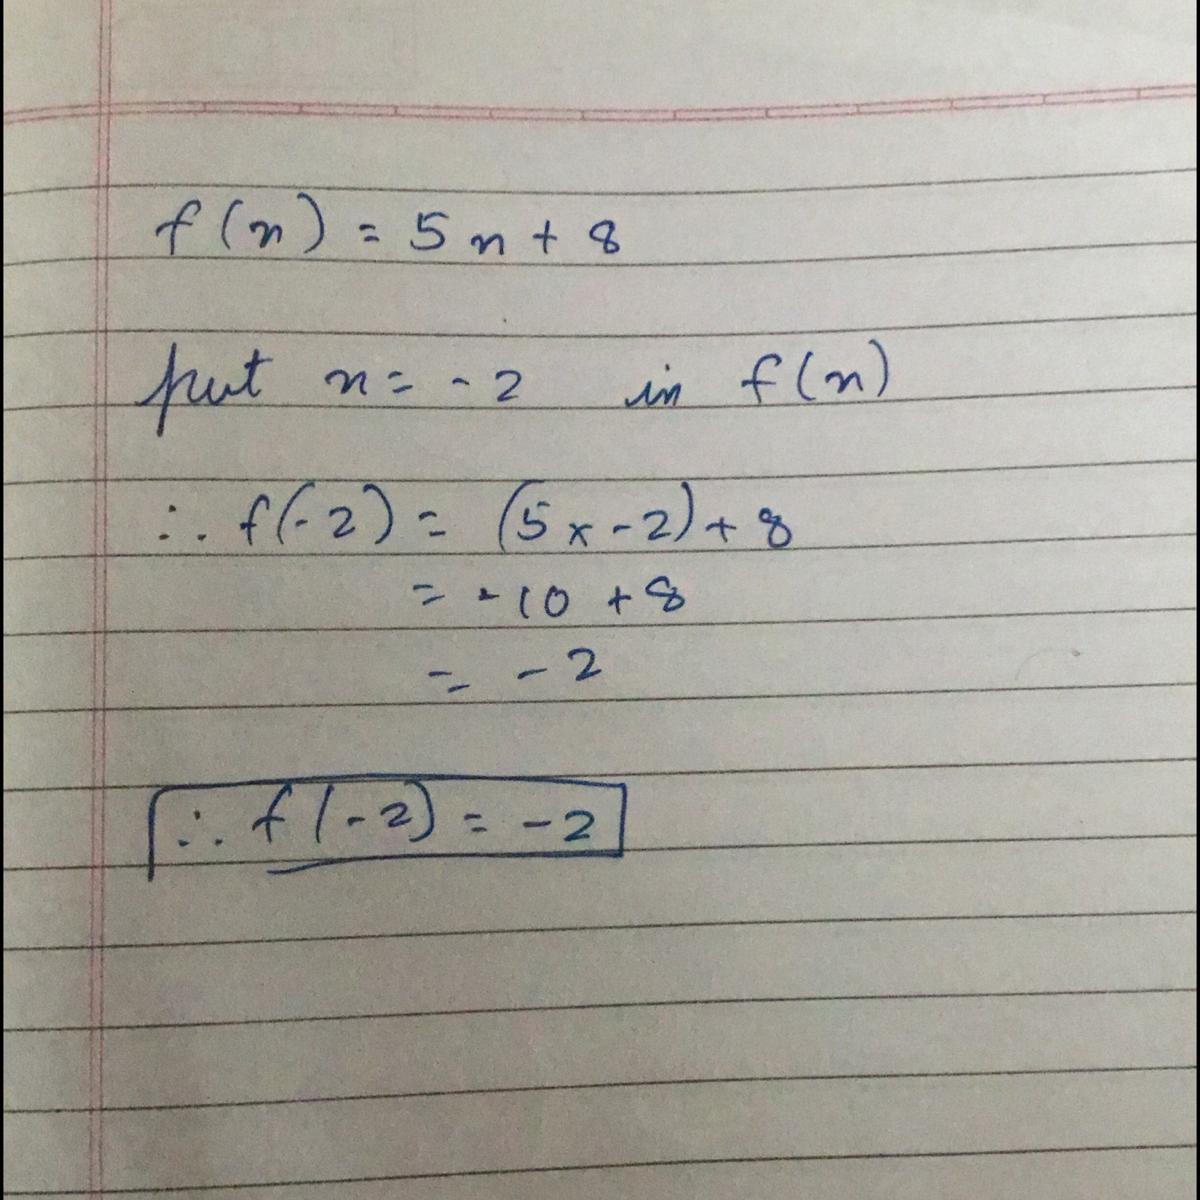 f(x) = 5x + 8
put x = -2 in f(x)
∴ f(-2) = (5 x -2) + 8
= -10 + 8
= -2
∴ f(-2) = -2